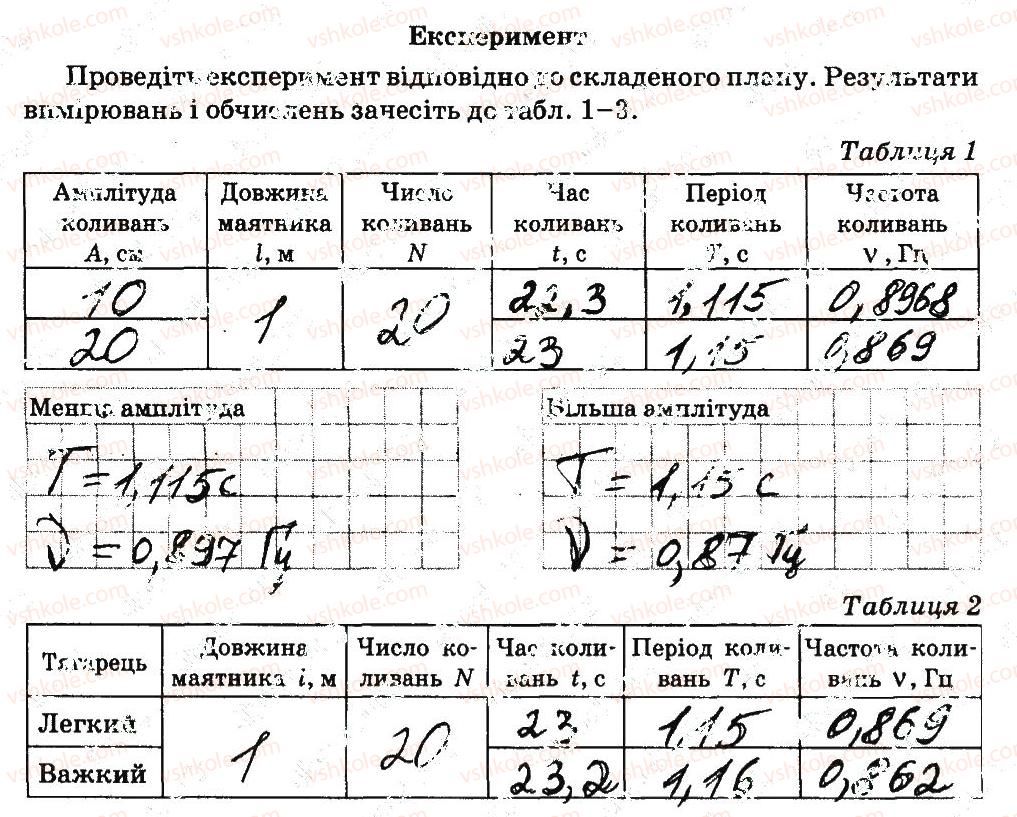 Експеримент
Проведіть експеримент відповідно до складеного плану. Результати
вимірювань і обчислень занесіть до табл. 1–3.
Таблиця 1
Амплітуда коливань A, см | Довжина маятника l, м | Число коливань N | Час коливань t, с | Період коливань T, с | Частота коливань ν, Гц
10 | 1 | 20 | 22,3 | 1,115 | 0,8968
20 | 23 | 1,15 | 0,869
Менша амплітуда
T = 1,115 с
ν = 0,897 Гц
Більша амплітуда
T = 1,15 с
ν = 0,87 Гц
Таблиця 2
Тягарець | Довжина маятника l, м | Число коливань N | Час коливань t, с | Період коливань T, с | Частота коливань ν, Гц
Легкий | 1 | 20 | 23 | 1,15 | 0,869
Важкий | 23,2 | 1,16 | 0,862
vshkole.com